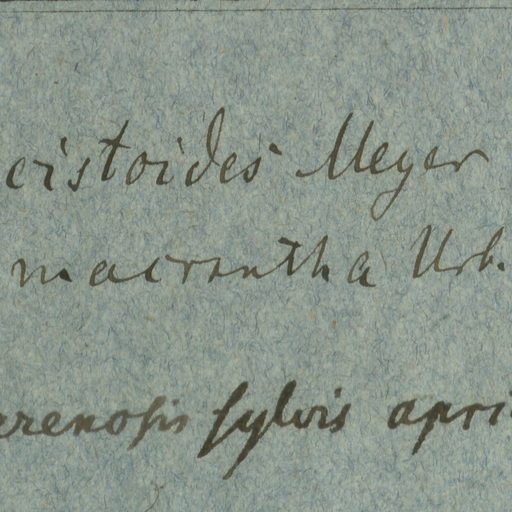 cistoides Meyer
macrantha Urb.
arenosis sylvis apri